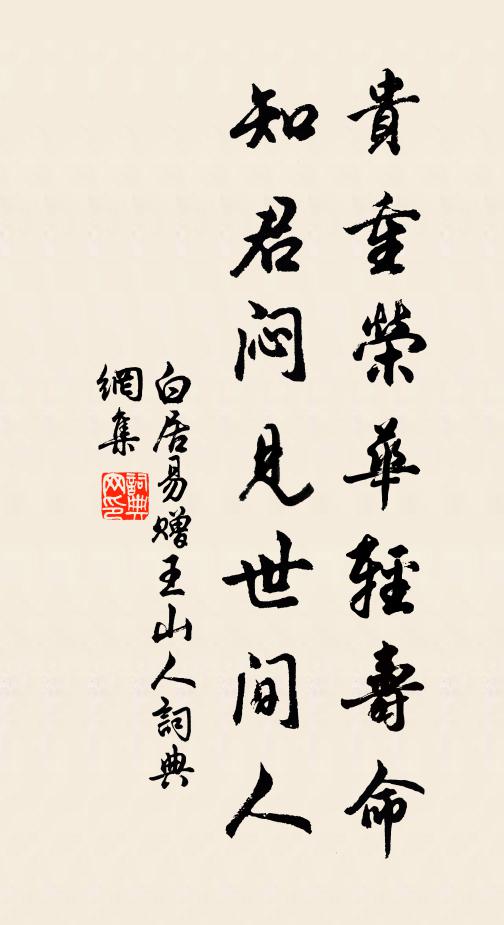 貴重榮華輕壽命
知君悶見世間人
白居易赠王山人詞典
網集
詞典网印